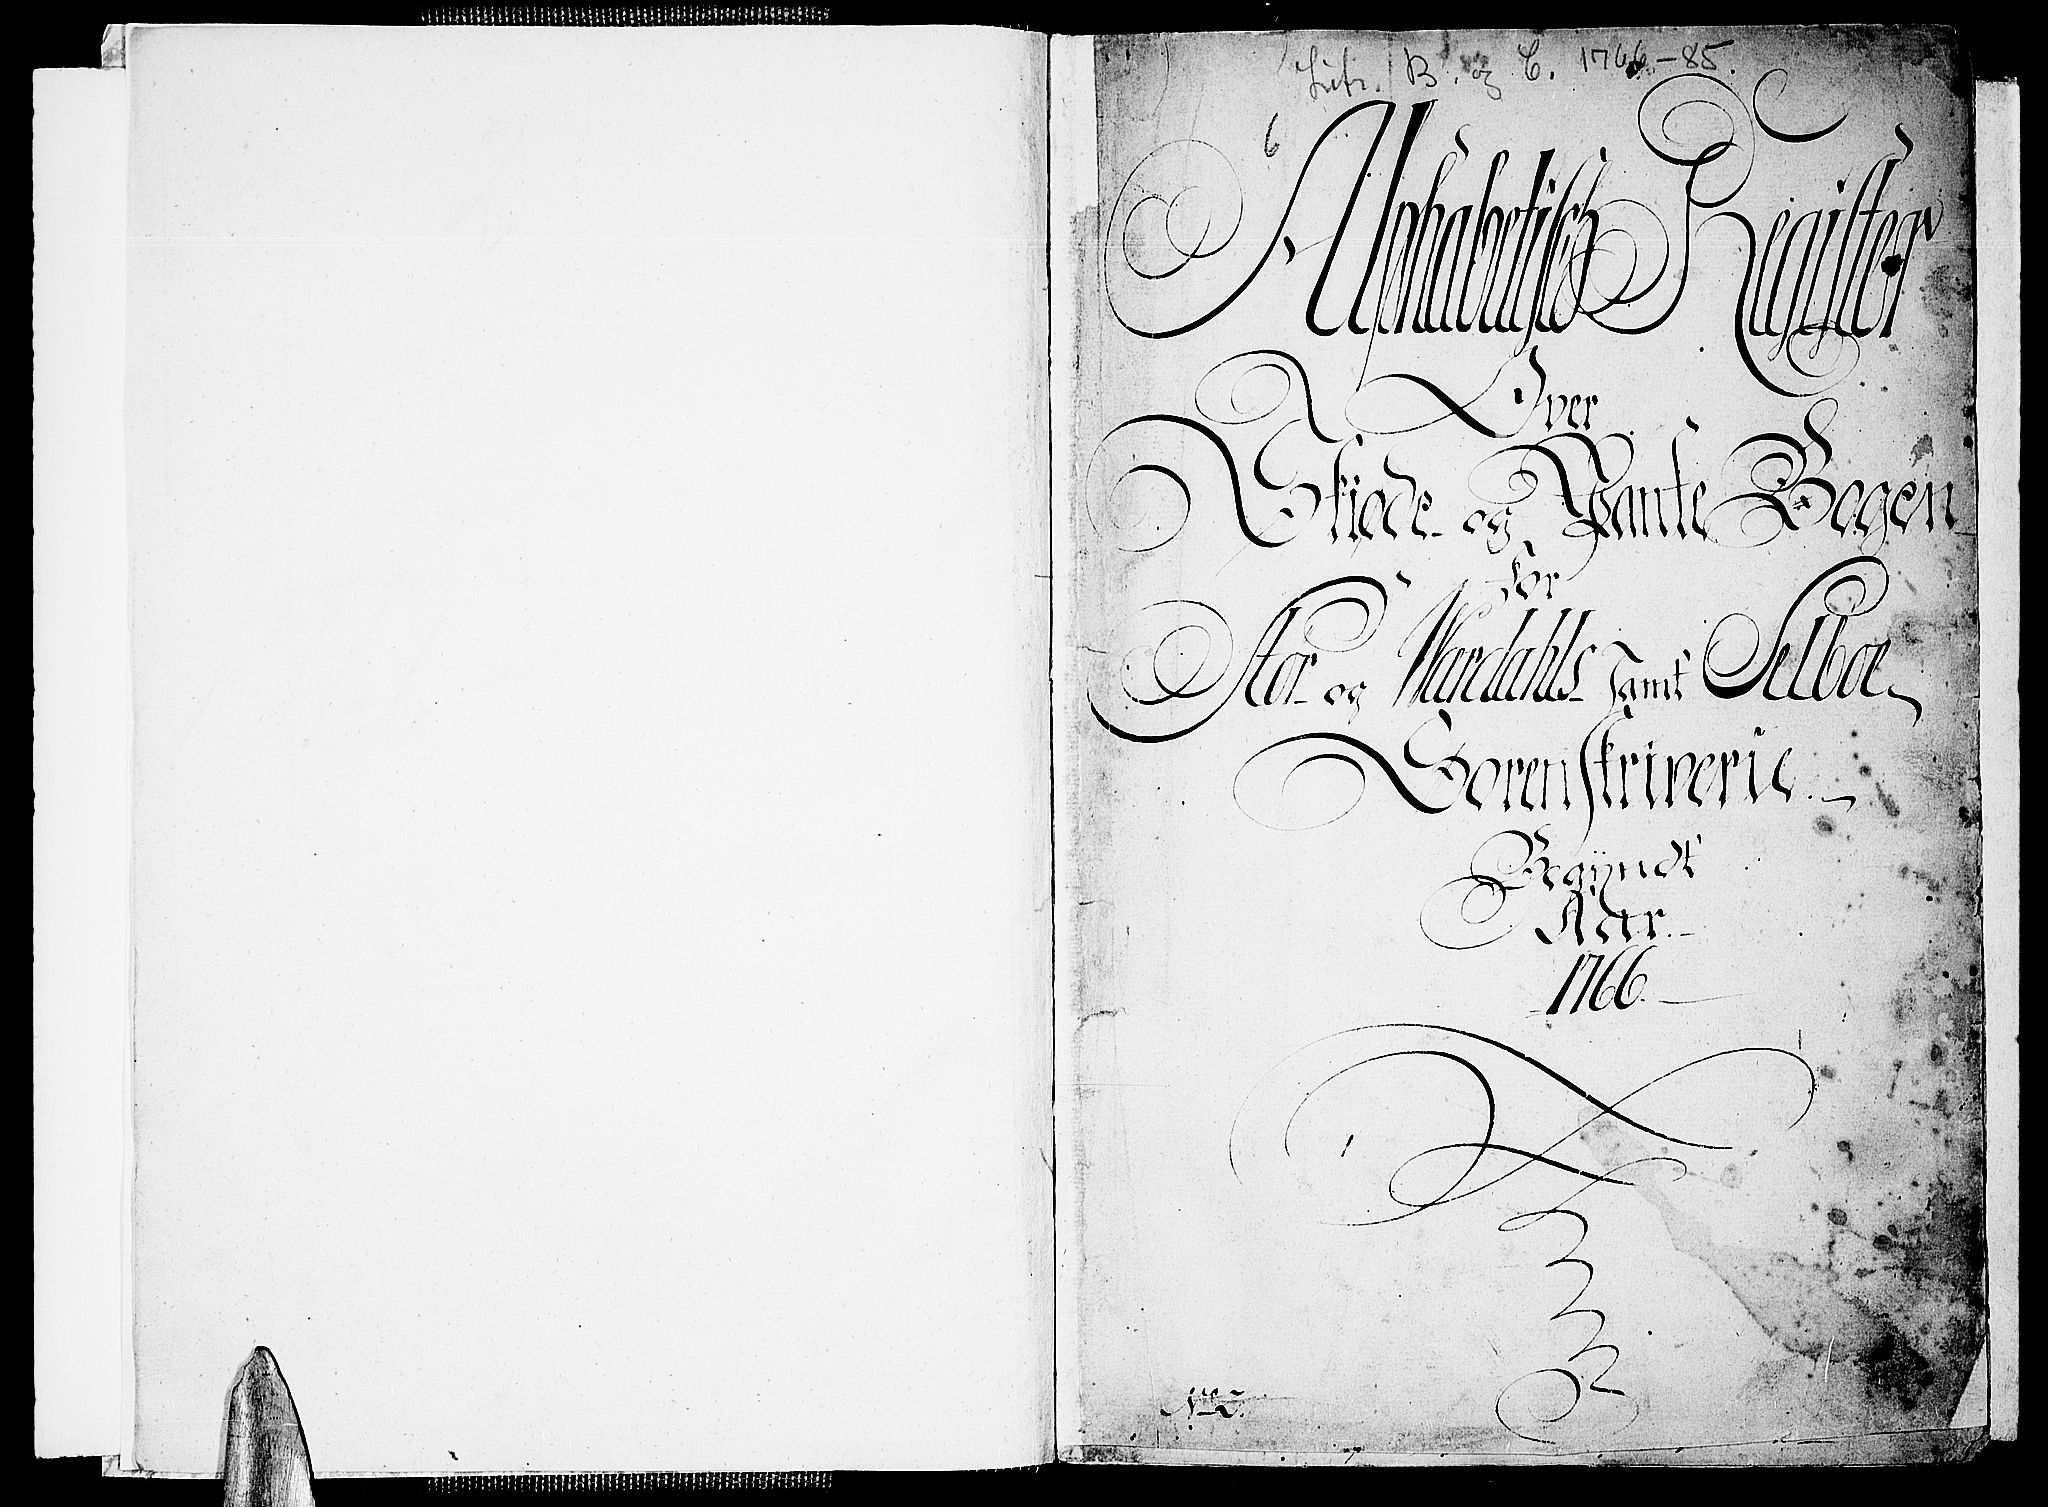 Litr. B. og C. 1766-85.
6
Alphabetisch Register
Over
Skiøde- og Pante Bogen
for
Stør- og Wærdahls- samt Selboe
Sorenskriverie.
Begyndt
Aar.
1766.
No 2.